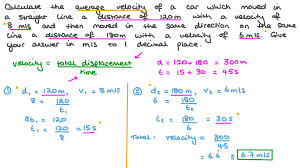 Calculate the average velocity of a car which moved in
a straight line a distance of 120m with a velocity of
8 m/s and then moved in the same direction on the same
line a distance of 180m with a velocity of 6 m/s. Give
your answer in m/s to 1 decimal place.
velocity = total displacement / time
d = 120 + 180 = 300m
t = 15 + 30 = 45s
① d₁ = 120m, v₁ = 8 m/s
8 = 120 / t₁
8t₁ = 120
t₁ = 120 / 8 = 15s
② d₂ = 180m, v₂ = 6 m/s
6 = 180 / t₂
t₂ = 180 / 6 = 30s
Total: velocity = 300 / 45
= 6.6 ≈ 6.7 m/s